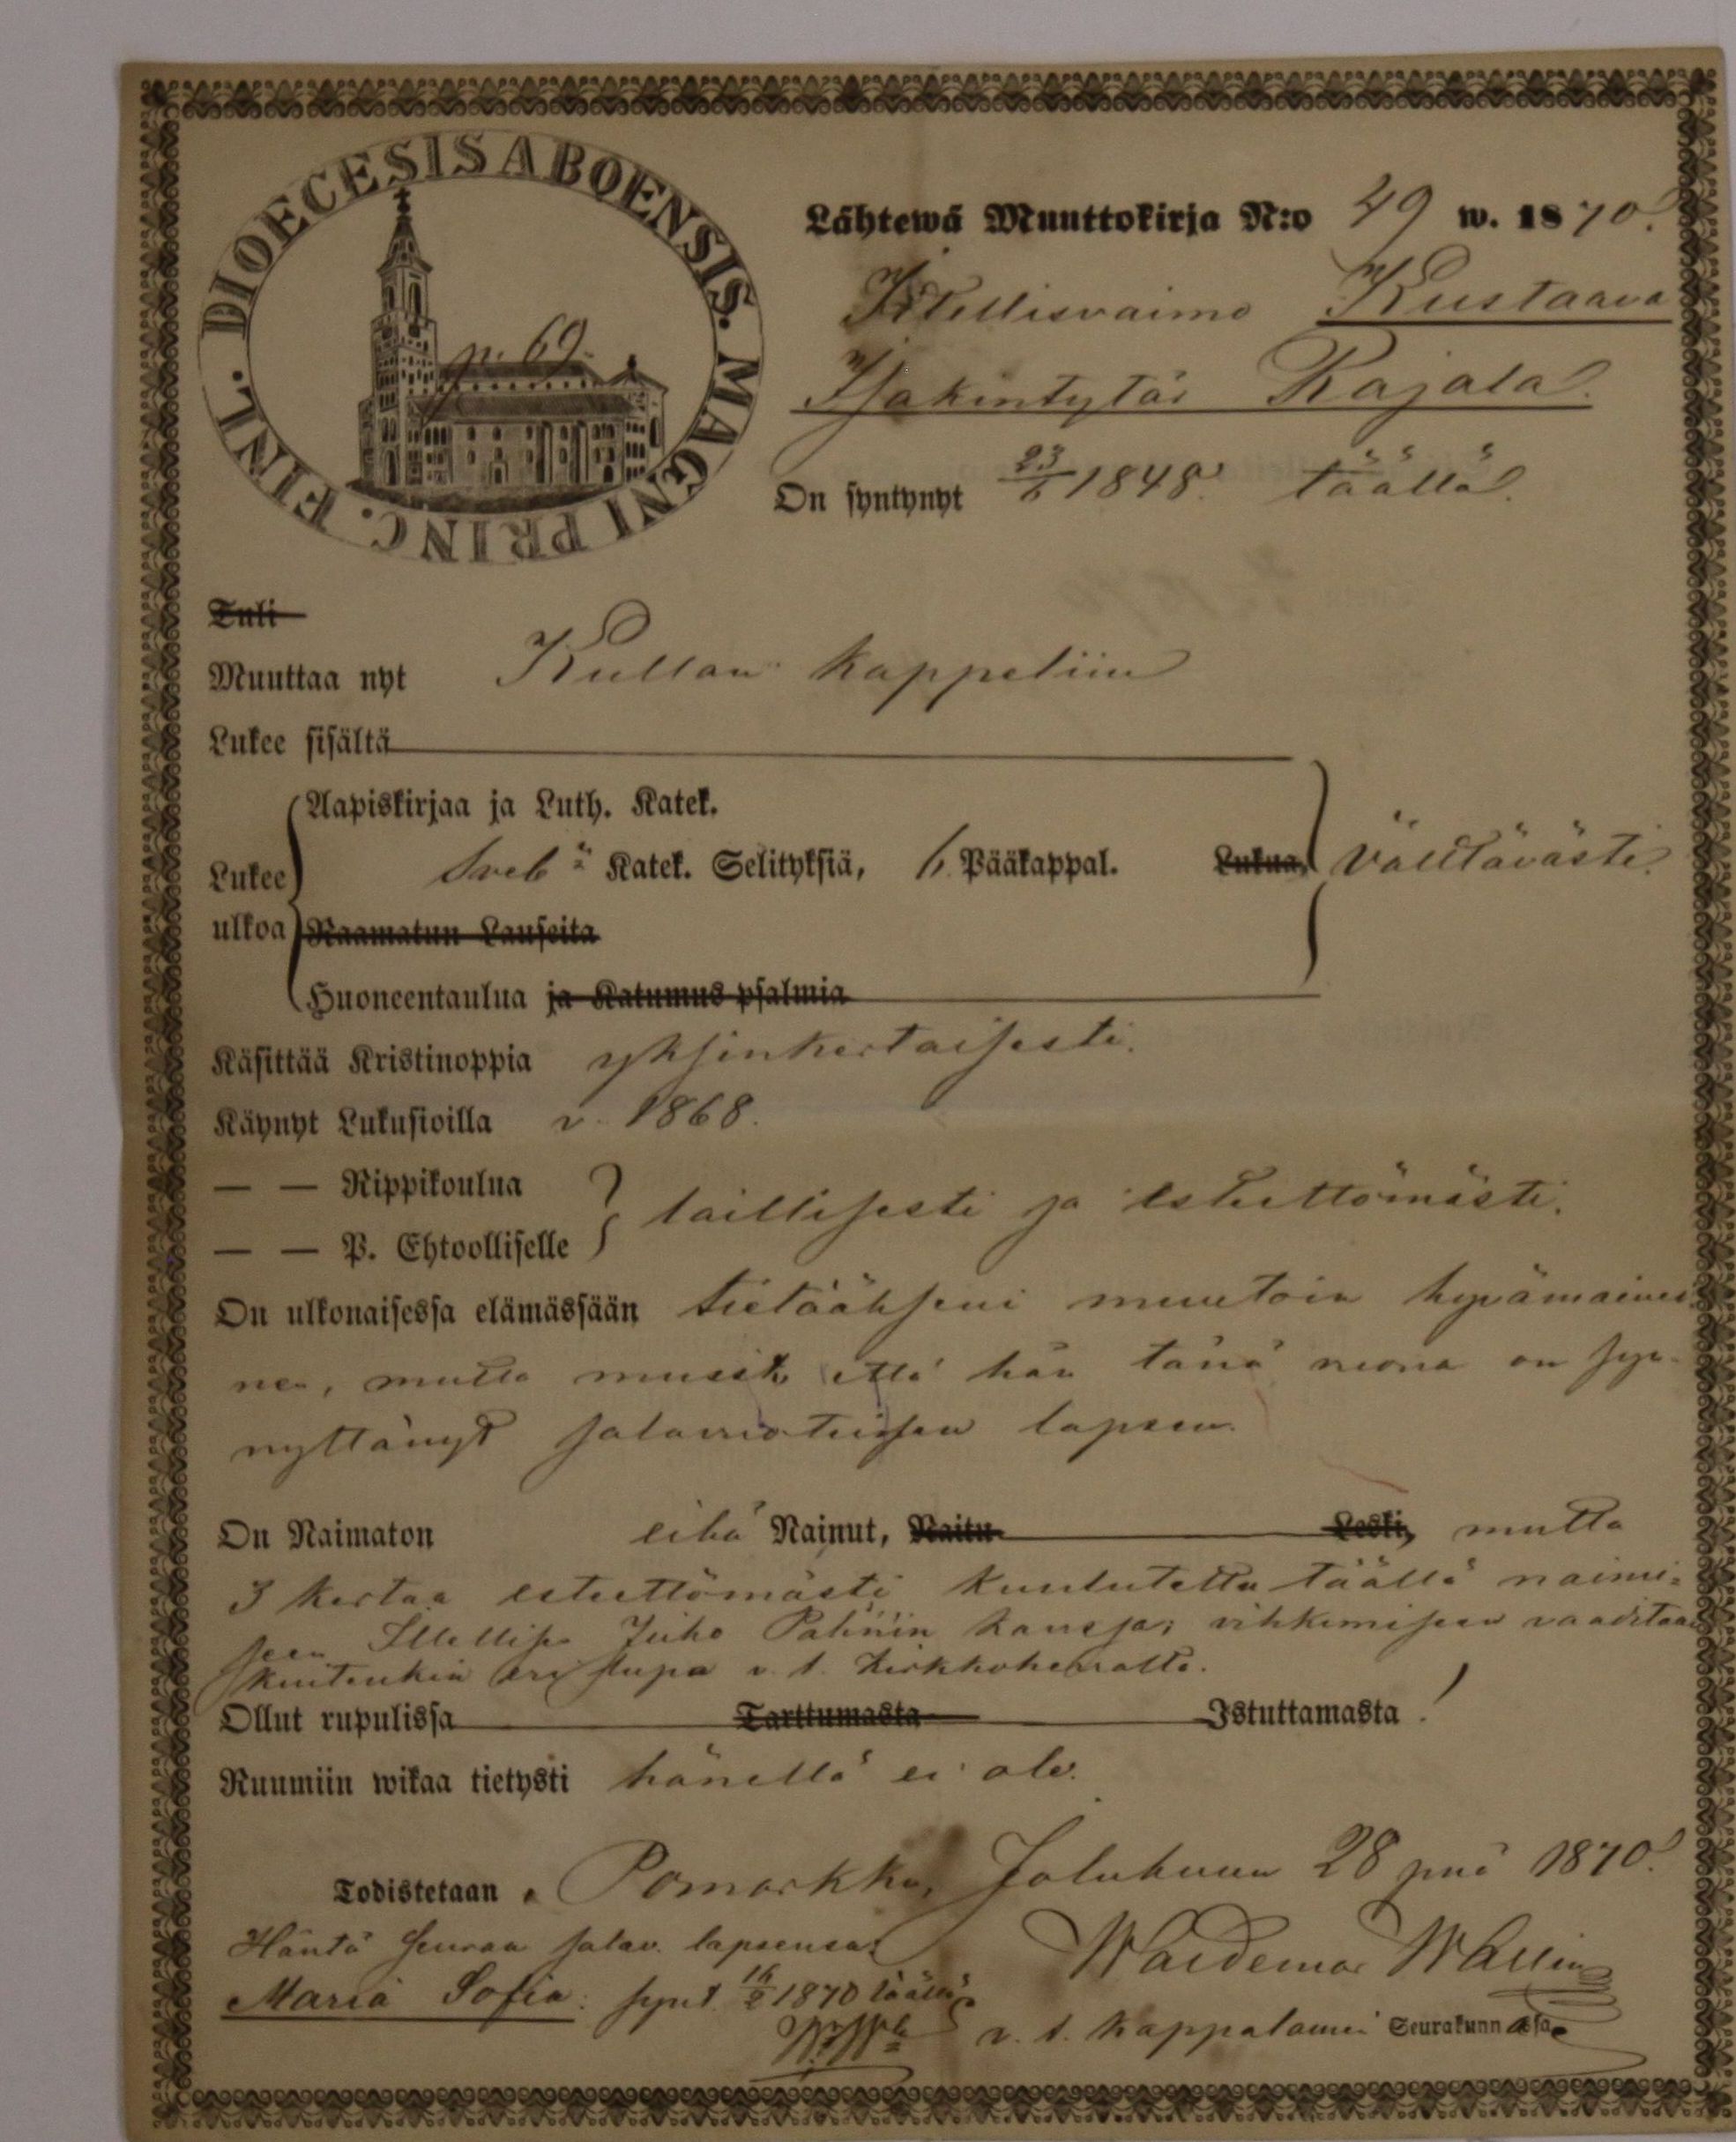 DIOECESIS ABOENSIS. MAGNI PRINC. FINL.
p. 69.
Lähtewä Muuttokirja N:o 49 w. 1870.
Itsellisvaimo Kustaava
Isakintytär Rajala.
On syntynyt 23/6 1848. täällä.
Tuli
Muuttaa nyt Kullan kappeliin
Lukee sisältä
Aapiskirjaa ja Luth. Katek.
Lukee Sveb:n Katek. Selityksiä, 6. Pääkappal. Lukua, välttävästi.
ulkoa Raamatun Lauseita
Huoneentaulua ja Katumus psalmia
Käsittää Kristinoppia yksinkertaisesti.
Käynyt Lukusioilla v. 1868.
— — Rippikoulua
laillisesti ja esteettömästi.
— — P. Ehtoolliselle
On ulkonaisessa elämässään tietääkseni muutoin hyvämainei-
nen, mutta että hän tänä vuona on syn-
nyttänyt salavuoteisen lapsen.
On Naimaton eikä Nainut, Naitu Leski, mutta
3 kertaa esteettömästi kuulutettu täällä naimi-
seen Itsellis. Juho Palinin kanssa; vihkimiseen vaaditaan
kuitenkin lupa v. t. kirkkoherralta.
Ollut rupulissa Tarttumasta Istuttamasta!
Ruumiin wikaa tietysti hänellä ei ole.
Todistetaan, Pomarkku, Joulukuun 28 pnä 1870.
Häntä seuraa salav. lapsensa:
Waldemar Wallin
Maria Sofia: synt. 16/2 1870 täällä
W. W:n
v. t. kappalainen Seurakunnassa